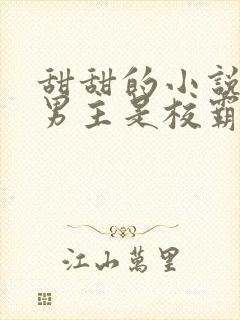 甜甜的小說
男主是校霸
江山萬里